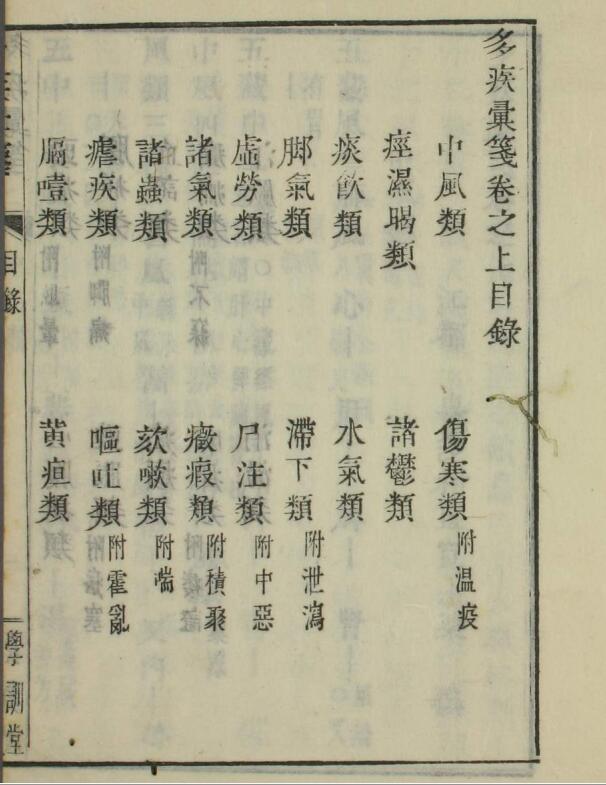 多疾彙箋卷之上目錄
中風類 傷寒類 附温疫
痙濕暍類 諸鬱類
痰飲類 水氣類
脚氣類 滯下類 附泄瀉
虛勞類 尸注類 附中惡
諸氣類 癥瘕類 附積聚
諸蟲類 欬嗽類 附喘
瘧疾類 嘔吐類 附霍亂
膈噎類 黄疸類
目錄 學訓堂